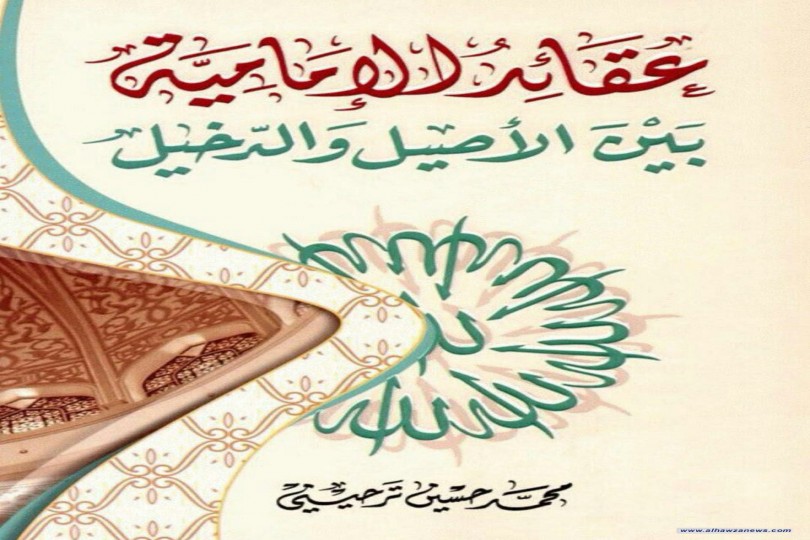 عُقَائِدُ الإِمَامِيَّة
بَيْنَ الأَصِيل وَالدّخيل
محمّد حسين ترحيني
www.alhawzanews.com